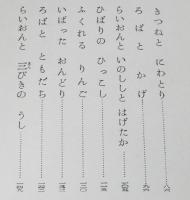 きつねと にわとり……八六
ろばと かげ……九六
らいおんと いのししと はげたか……一〇五
ひばりの ひっこし……一一一
ふくれる りんご……一二〇
いばった おんどり……一三一
ろばと ともだち……一四三
らいおんと 三びきの うし……一四九